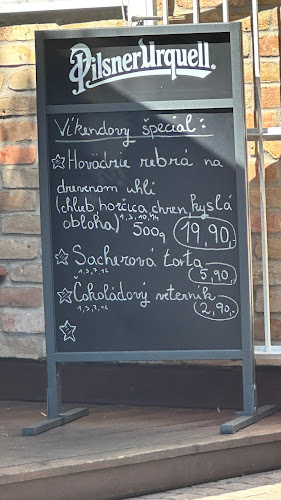 Pilsner Urquell.
Víkendový špeciál:
Hovädzie rebrá na
drevenom uhlí
(chlieb, horčica, chren, kyslá
obloha) 1,3,10,14 500g 19,90,
Sacherová torta
1,3,7,16 5,90,
Čokoládový veterník
1,3,7,16 2,90,